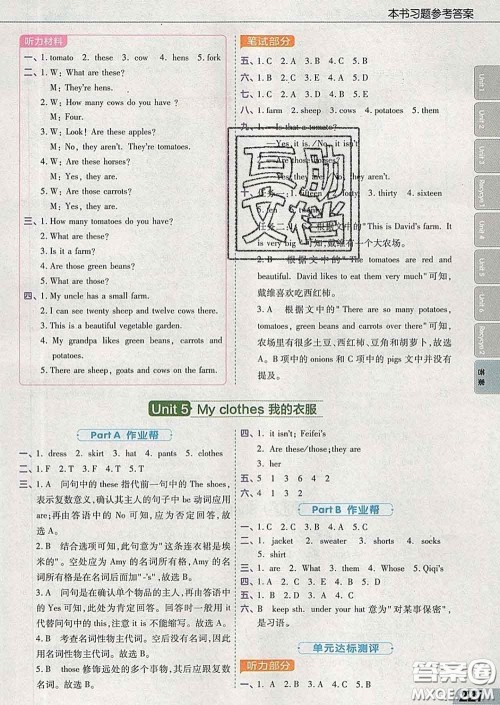 本书习题参考答案
听力材料
一、1. tomato 2. these 3. cow 4. hens 5. fork
二、1. W: What are these?
M: They're hens.
2. W: How many cows do you have?
M: Four.
3. W: Look! Are these apples?
M: No, they aren't. They're tomatoes.
4. W: Are these horses?
M: Yes, they are.
5. W: Are those carrots?
M: Yes, they are.
三、1. How many tomatoes do you have?
2. What are these?
3. Is it a farm?
4. Are those green beans?
5. What are those?
四、1. My uncle has a small farm.
2. I can see twenty sheep and twelve cows there.
3. This is a beautiful vegetable garden.
4. My grandpa likes green beans, carrots and potatoes.
5. There are sheep, goats and cows on the farm.
笔试部分
五、1. C 2. A 3. C 4. D 5. B
六、1. B 2. A 3. C 4. A 5. A
1. farm 2. sheep 3. cows 4. potatoes 5. them
九、1. —Is that a tomato?
—Yes, it is./No, it isn't.
—Are those horses?
fifteen 2. forty 3. thirty 4. sixteen
5. ten
根据文中的"This is David's farm. It
is very big"可知，戴维有一个大农场。
2. B 根据文中的"The tomatoes are red and
beautiful. David likes to eat them very much"可知，
戴维喜欢吃西红柿。
3. A 根据文中的"There are so many potatoes,
tomatoes, green beans and carrots over there"可知，
农场里有很多土豆、西红柿、豆角和胡萝卜，故选
A。B项中的onions和C项中的pigs文中并没有
提及。
互助
文档
Unit 1
Unit 2
Unit 3
Recycle 1
Unit 4
Unit 5
Unit 6
Recycle 2
答案
Unit 5 My clothes 我的衣服
Part A 作业帮
一、1. dress 2. skirt 3. hat 4. pants 5. clothes
二、1. F 2. T 3. F 4. T 5. F
三、1. A 问句中的these指代前一句中的The shoes，
表示复数意义，因此其主人的句子中be动词应用
are；再由答语中的No可知，应为否定回答。故
选A。
2. B 结合选项可知，此句意为"这条连衣裙是Amy的
米的"。空处应为Amy的名词所有格，Amy的名词
所有格是在名词后面加"-'s"，故选B。
3. A 由is确认是单个物品的主人，再由答语中的
Yes可知，此处应为肯定回答。一般疑问句的肯定
回答与问句在人称和数上要保持一致，故选A。
4. B 考查名词性物主代词。
5. B those修饰远处的多个事物，其后应跟复数名
词，故选B。
四、1. it isn't; Feifei's
2. Are these/those; they are
3. her
五、4 1 2 5 3
六、1 3 4 2
Part B 作业帮
一、1. C 2. C 3. C 4. A 5. B
二、1. jacket 2. sweater 3. shorts 4. socks
三、1. Whose 2. are 3. them 4. Whose 5. Qiqi's
四、1. A 2. C 3. B 4. A 5. B
五、1. C 2. D 3. A 4. B
六、B keep sth. under your hat意为"对某事保密"，
是习语。
单元达标测评
听力部分
一、1. B 2. A 3. B 4. A 5. A
答案圈
MXQE.COM
227